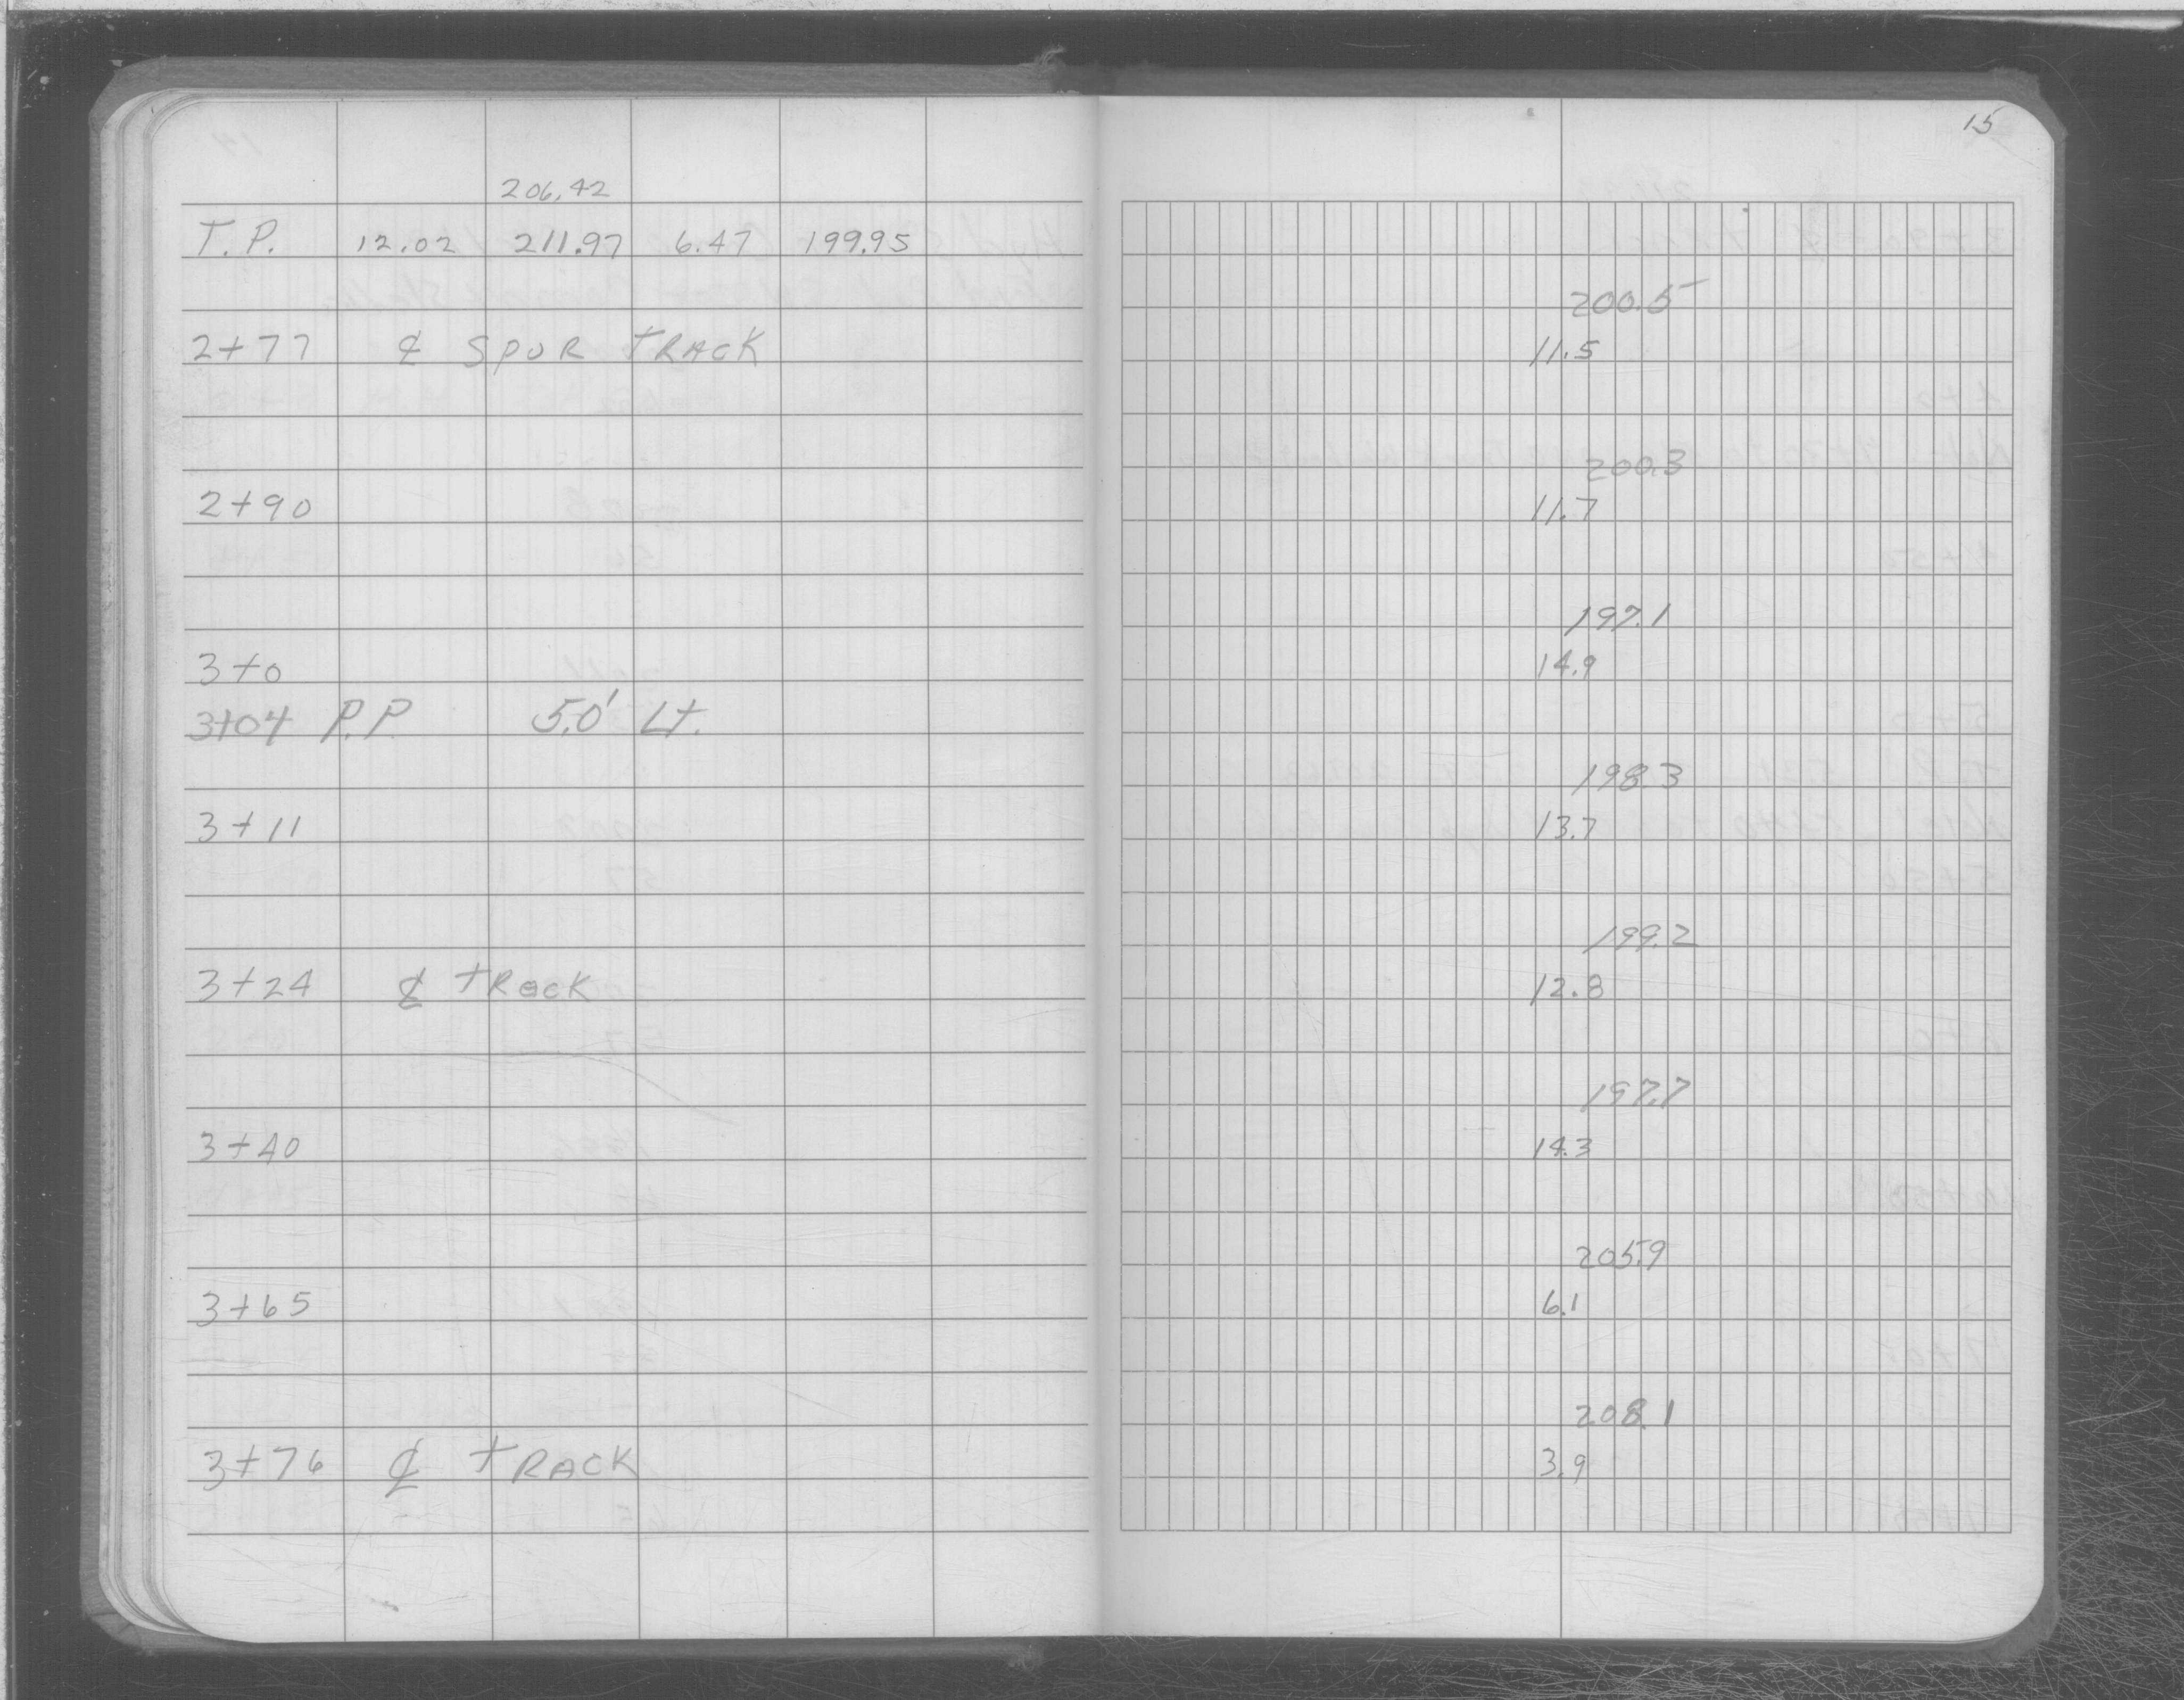 15
206.42
T.P. 12.02 211.97 6.47 199.95
200.5
2+77 ℄ SPUR TRACK 11.5
200.3
2+90 11.7
197.1
3+0 14.9
3+04 P.P. 5.0' Lt.
198.3
3+11 13.7
199.2
3+24 ℄ TRACK 12.8
197.7
3+40 14.3
205.9
3+65 6.1
208.1
3+76 ℄ TRACK 3.9